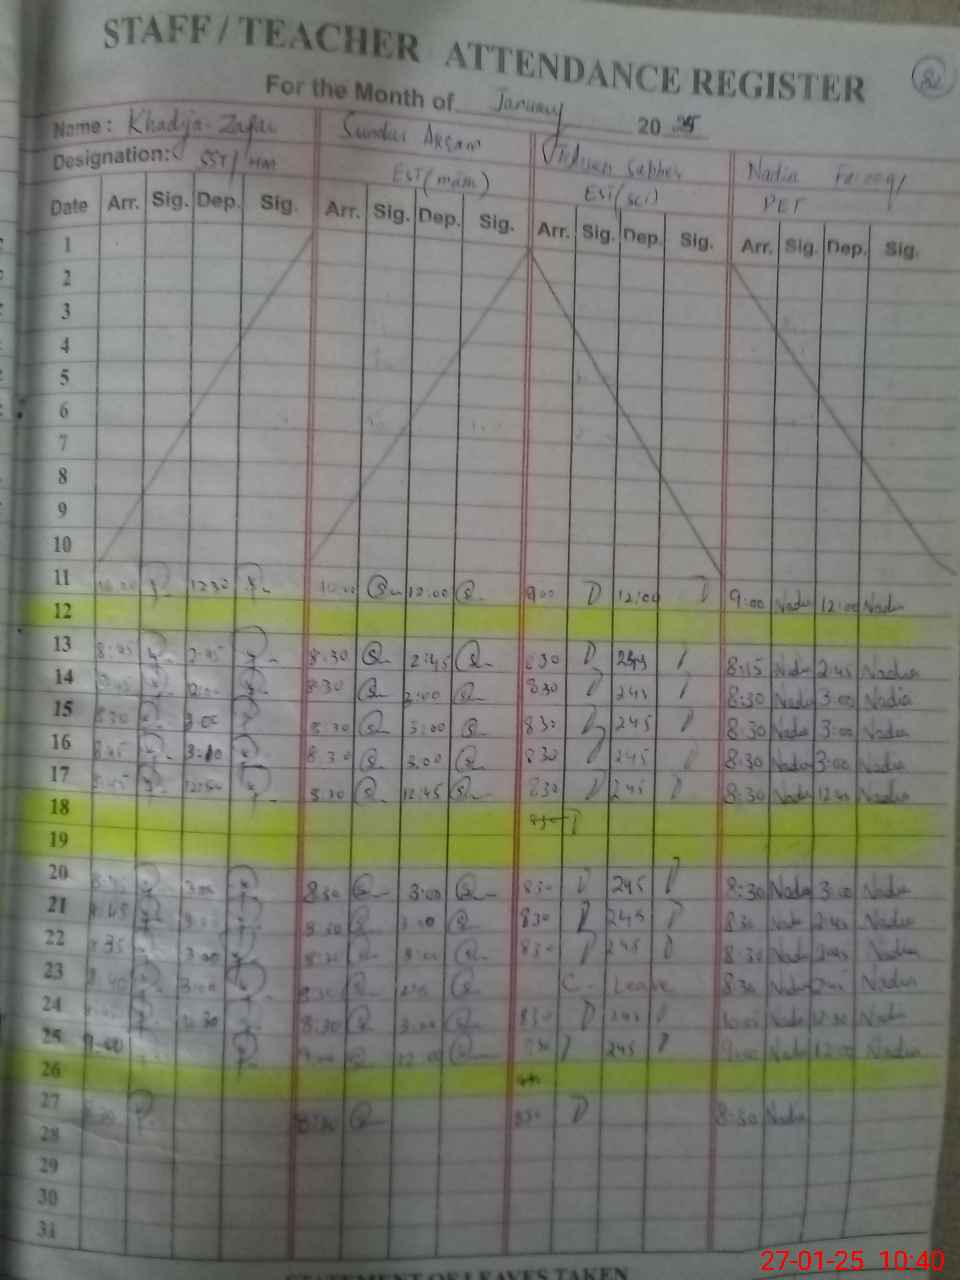 STAFF / TEACHER ATTENDANCE REGISTER
For the Month of January 20 25
Name: Khadija Zafar Sundas Nadia Farooq
Designation: SST/HM EST(mam) EST(sci) PET
Date Arr. Sig. Dep. Sig. Arr. Sig. Dep. Sig. Arr. Sig. Dep. Sig. Arr. Sig. Dep. Sig.
1
2
3
4
5
6
7
8
9
10
11 1230 12:00 9:00 Nadia 12:00 Nadia
12
13 8:45 2:45 8:30 2:45 830 245 8:15 Nadia 2:45 Nadia
14 8:30 3:00 830 245 8:30 Nadia 3:00 Nadia
15 830 3:00 8:30 3:00 830 245 8:30 Nadia 3:00 Nadia
16 8:45 3:10 8:30 3:00 830 245 8:30 Nadia 3:00 Nadia
17 8:45 12:50 8:30 12:45 830 245 8:30 Nadia 12:45 Nadia
18
19
20 3:00 8:30 3:00 830 245 8:30 Nadia 3:00 Nadia
21 8:45 8:30 3:00 830 245 8:30 Nadia 2:45 Nadia
22 8:35 3:00 8:30 3:00 830 245 8:30 Nadia 2:45 Nadia
23 8:40 3:00 8:30 C. Leave 8:30 Nadia 2:45 Nadia
24 8:30 3:00 830 245 Nadia 12:30 Nadia
25 9:00 9:00 12:00 245 9:00 Nadia 12:00 Nadia
26
27 8:30 8:30 830 8:30 Nadia
28
29
30
31
STATEMENT OF LEAVES TAKEN
27-01-25 10:40